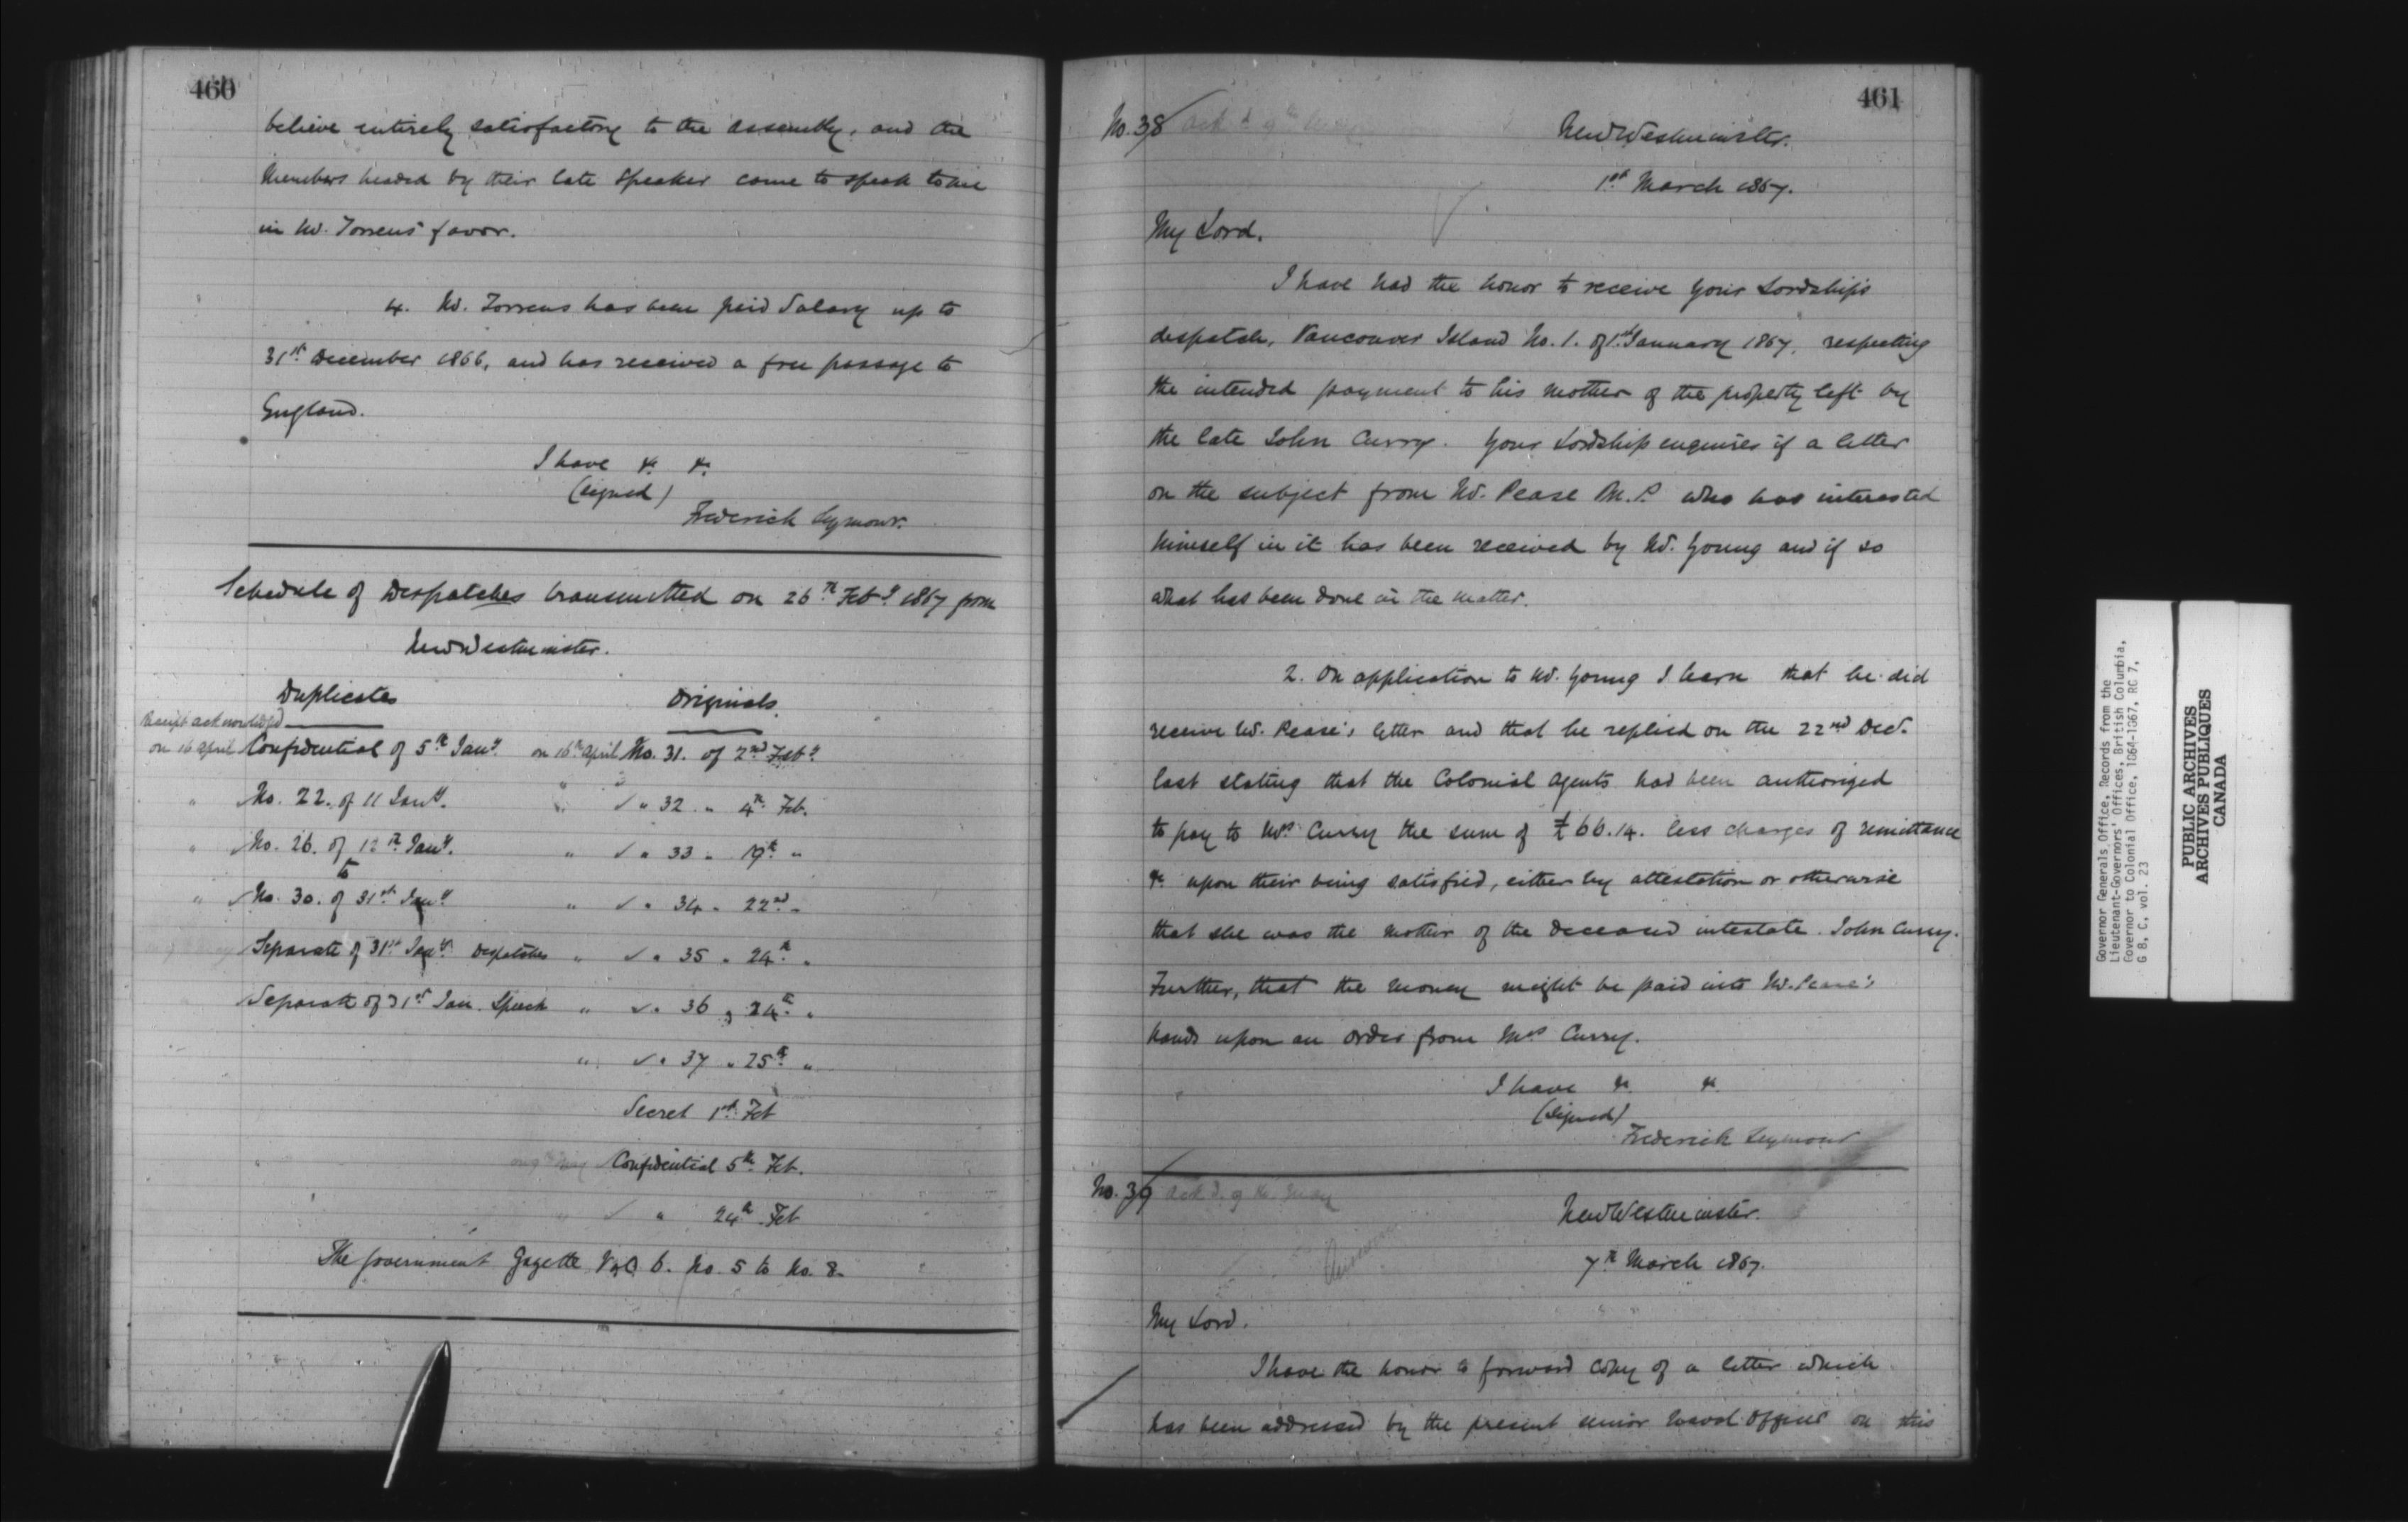 460
believe entirely satisfactory to the Assembly, and the
Members headed by their late Speaker come to speak to me
in Mr. Torrens' favor.
4. Mr. Torrens has been paid Salary up to
31st December 1866, and has received a free passage to
England.
I have &c &c.
(signed)
Frederick Seymour.
Schedule of Despatches transmitted on 26th Feby 1867 from
New Westminster.
Duplicates Originals
Receipt acknowledged
on 16 April Confidential of 5th Jany. on 16th April No. 31. of 2nd Feby
" No. 22. of 11 Jany. " ✓ " 32 " 4th Feb.
" No. 26. of 12th Jany. " ✓ " 33 " 19th "
to
" ✓ No. 30. of 31st Jany " ✓ " 34 " 22nd "
Separate of 31st Jany. Despatches " ✓ " 35 " 24th "
Separate of 31st Jan. Speech " ✓ " 36 " 24th "
" ✓ " 37 " 25th "
Secret 1st Feb
Confidential 5th Feb.
" ✓ " 24th Feb
The Government Gazette Vol 6. No. 5 to No. 8.
461
No. 38 ackd 9th
New Westminster.
1st March 1867.
My Lord.
I have had the honor to receive Your Lordship's
despatch, Vancouver Island No. 1. of 1st January 1867, respecting
the intended payment to his mother of the property left by
the late John Curry. Your Lordship enquires if a letter
on the subject from Mr. Pease M.P. who has interested
himself in it has been received by Mr. Young and if so
what has been done in the matter.
2. On application to Mr. Young I learn that he did
receive Mr. Pease's letter and that he replied on the 22nd Decr.
last stating that the Colonial Agents had been authorized
to pay to Mrs Curry the sum of £66.14. less charges of remittance
&c upon their being satisfied, either by attestation or otherwise
that she was the mother of the deceased intestate John Curry.
Further, that the money might be paid into Mr. Pease's
hands upon an order from Mrs Curry.
I have &c. &c.
(signed)
Frederick Seymour
No. 39 ackd. 9th May
New Westminster.
7th March 1867.
My Lord.
I have the honor to forward copy of a letter which
has been addressed by the present senior Naval Officer on this
Governor Generals Office, Records from the
Lieutenant-Governors' Offices, British Columbia,
Governor to Colonial Office, 1864-1867, RG 7,
G 8, C, vol. 23
PUBLIC ARCHIVES
ARCHIVES PUBLIQUES
CANADA